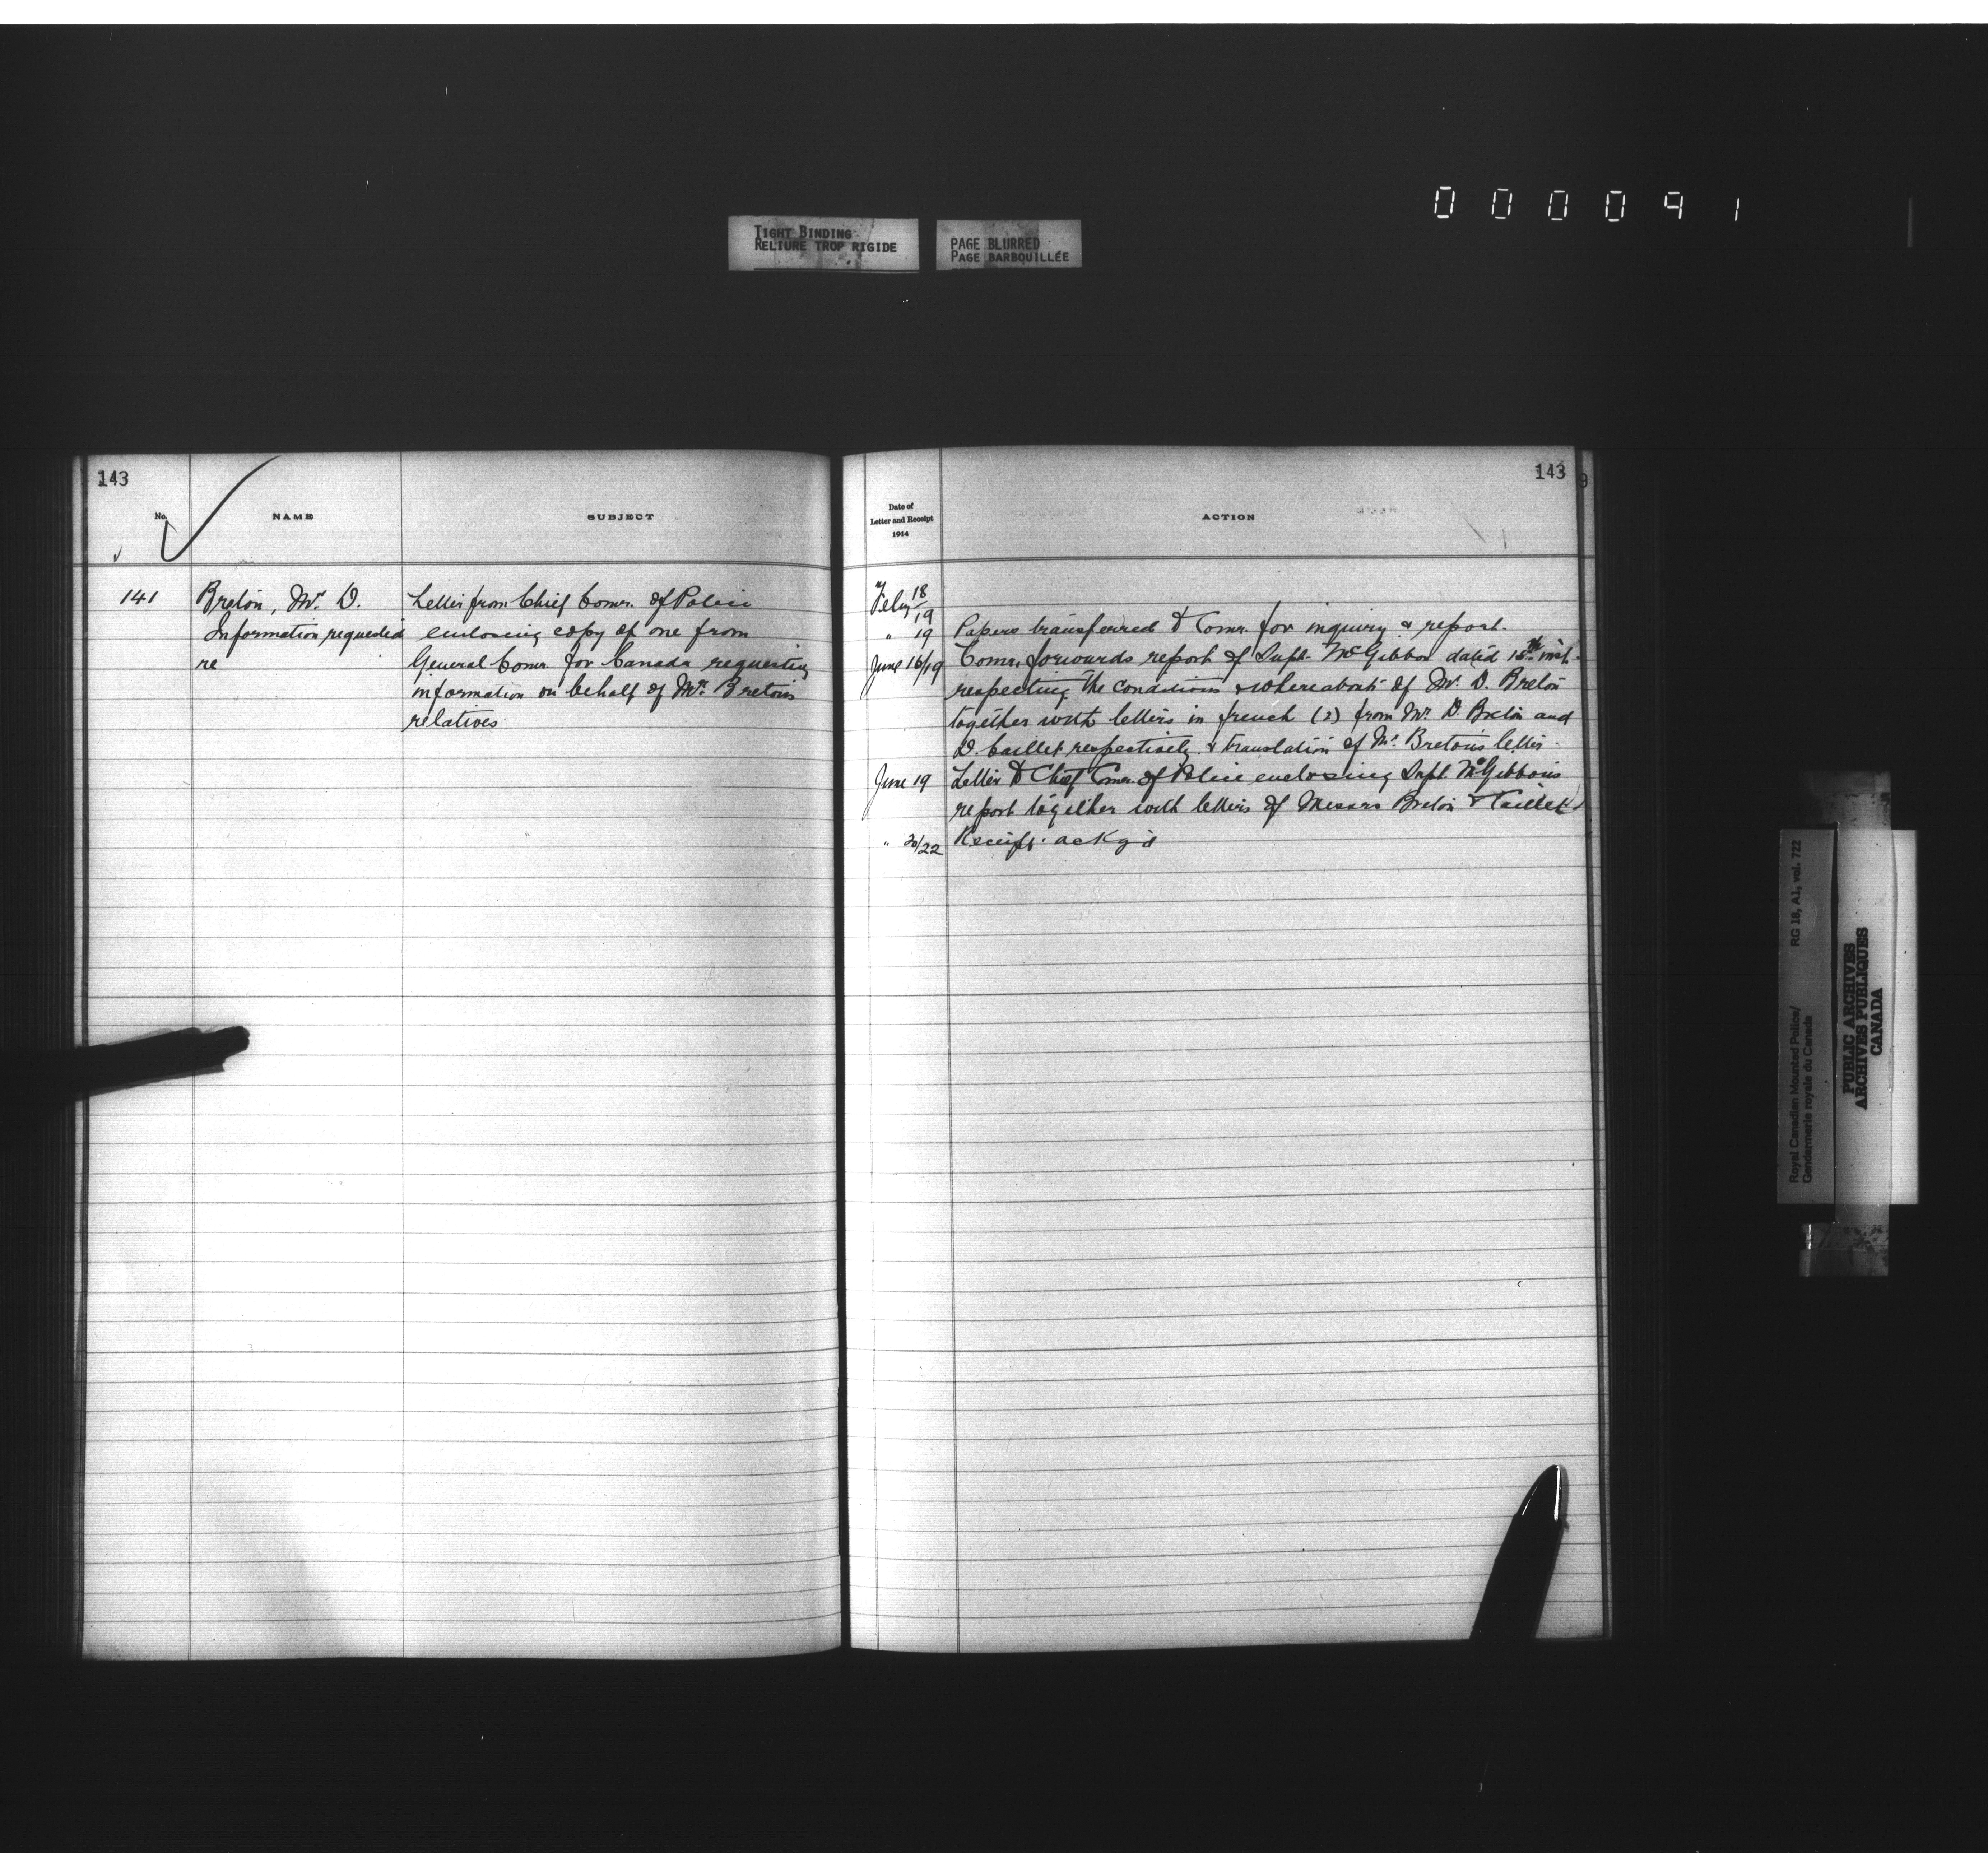 000091
TIGHT BINDING
RELIURE TROP RIGIDE
PAGE BLURRED
PAGE BARBOUILLÉE
143
No.
NAME
SUBJECT
141
Breton, Mr. D.
Information requested
re
Letter from Chief Comr. of Police
enclosing copy of one from
General Comr. for Canada requesting
information on behalf of Mr. Breton's
relatives
143
9
Date of
Letter and Receipt
1914
ACTION
Feby 18/19
" 19 Papers transferred to Comr. for inquiry & report.
June 16/19 Comr. forwards report of Supt. McGibbon dated 15th inst.
respecting the conditions & whereabouts of Mr. D. Breton
together with letters in french (2) from Mr. D. Breton and
D. Caillet respectively & translation of Mr. Breton's letter.
June 19 Letter to Chief Comr. of Police enclosing Supt. McGibbon's
report together with letters of Messrs Breton & Caillet
" 20/22 Receipt ackg'd
Royal Canadian Mounted Police/
Gendarmerie royale du Canada
RG 18, A1, vol. 722
PUBLIC ARCHIVES
ARCHIVES PUBLIQUES
CANADA